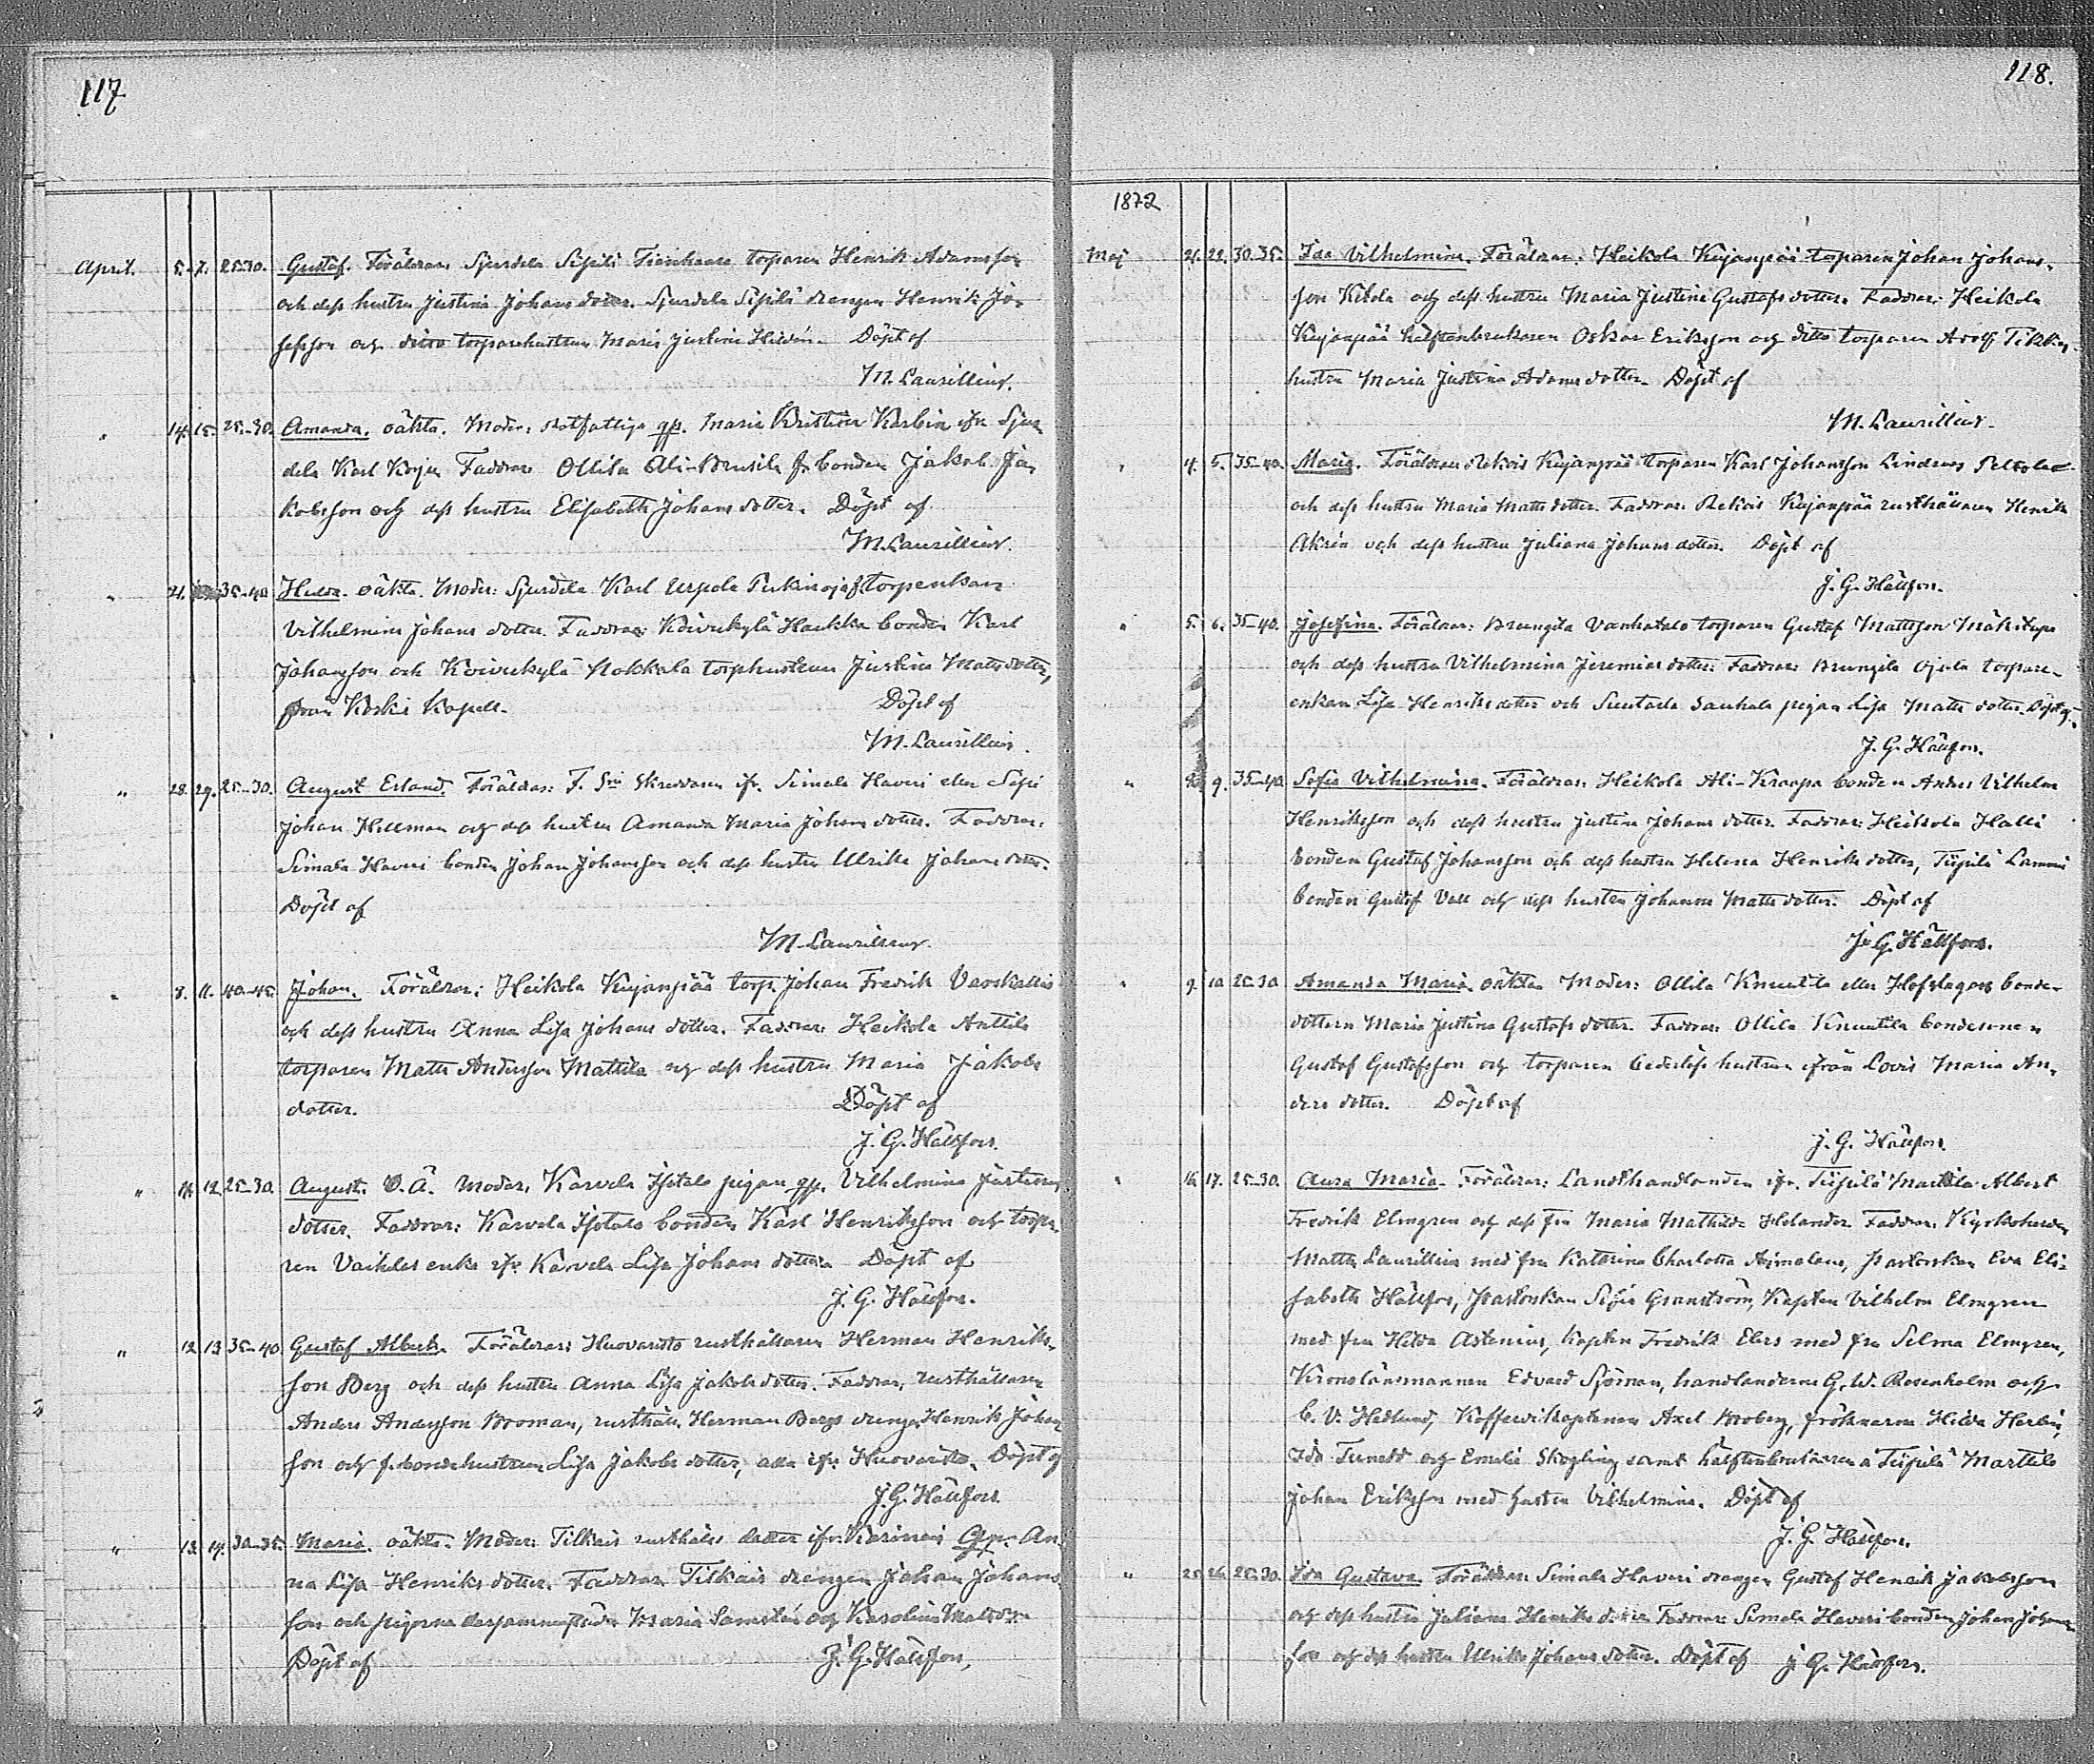 117
April. 5. 7. 25-30. Gustaf. Föräldrar: Sjurdela Sipilä torparen Henrik Adamsson
och dess hustru Justina Johansdotter. Sjurdela Sipilä drengen Henrik Jo-
sefsson och ditto torparehustrun Maria Justina Hildén. Döpt af
M. Laurillius.
" 14. 15. 25-30. Amanda. oäkta. Moder: gp. Maria Kristina ifr. Sjur-
dela Karl Faddrar Ollila Ali-Brusila f. bonden Jakob Ja-
kobsson och dess hustru Elisabeth Johansdotter. Döpt af
M. Laurillius.
" 21. 35-40 Hilda. oäkta. Moder: Sjurdela Karl Uspola torpenkan
Vilhelmina Johansdotter. Faddrar: Koivukylä Haukka bonden Karl
Johansson och Koivukylä Nokkala torphustrun Justina Matsdotter,
från Koskis Kapell. Döpt af
M. Laurillius.
" 28. 29. 25-30. August Erland. Föräldrar: Skreddaren ifr. Simala Haveri eller
Johan Hellman och dess hustru Amanda Maria Johansdotter. Faddrar:
Simala Haveri bonden Johan Johansson och dess hustru Ulrika Johansdotter.
Döpt af
M. Laurillius.
" 8. 11. 40-45. Johan. Föräldrar: Heikola Kujanpää torp. Johan Fredrik
och dess hustru Anna Lisa Johansdotter. Faddrar: Heikola Anttila
torparen Matts Andersson Mattila och dess hustru Maria Jakobs
dotter. Döpt af
J. G. Hällfors.
" 11. 12. 25-30. August. O. Ä. Moder, Karvela Isotalo pigan gp. Vilhelmina Justina
dotter. Faddrar: Karvela Isotalo bonden Karl Henriksson och torpa-
ren enka ifr. Karvela Lisa Johansdotter. Döpt af
J. G. Hällfors.
" 12. 13. 35-40 Gustaf Albert. Föräldrar: Huovaristo rusthållaren Herman Henriks-
son Berg och dess hustru Anna Lisa Jakobsdotter. Faddrar, rusthållaren
Anders Andersson Broman, rusthåll. Herman Bergs drenge Henrik Johans-
son och f. bondehustrun Lisa Jakobsdotter, alla ifr. Huovaristo. Döpt af
J. G. Hällfors.
" 13. 14. 30-35. Maria. oäkta. Moder: Tilkais rusthåll. dotter ifr. Karinais Gp. An-
na Lisa Henriksdotter. Faddrar. Tilkais drengen Johan Johans-
son och pigorna dersammastädes Maria och Karolina Matsdr.
Döpt af J. G. Hällfors.
118.
1872
Maj 21. 22. 30-35. Ida Vilhelmina. Föräldrar: Heikola Kujanpää torparen Johan Johans-
son och dess hustru Maria Justina Gustafsdotter. Faddrar: Heikola
Kujanpää hälftenbrukaren Oskar Eriksson och ditto torparen Adolf
hustru Maria Justina Adamsdotter. Döpt af
M. Laurillius.
" 4. 5. 35-40. Maria. Föräldrar: Rekois Kujanpää torparen Karl Johansson Lindroos
och dess hustru Maria Mattsdotter. Faddrar: Rekois Kujanpää rusthållaren Henrik
Akrén och dess hustru Juliana Johansdotter. Döpt af
J. G. Hällfors.
" 5. 6. 35-40. Josefina. Föräldrar: Brungila Vanhatalo torparen Gustaf Mattsson
och dess hustru Vilhelmina Jeremiasdotter. Faddrar: Brungila Ojala torpare-
enkan Lisa Henriksdotter och Suutarla Sauhala pigan Lisa Mattsdotter. Döpt af.
J. G. Hällfors.
" 9. 35-40 Sofia Vilhelmina. Föräldrar: Heikola Ali-Kraapa bonden Anders Vilhelm
Henriksson och dess hustru Justina Johansdotter. Faddrar: Heikola Halli
bonden Gustaf Johansson och dess hustru Helena Henriksdotter, Tiipilä Lammi
bonden Gustaf Vall och dess hustru Johanna Mattsdotter. Döpt af
J. G. Hällfors.
" 9. 10. 25-30 Amanda Maria. oäkta. Moder: Ollila Knuutila eller Hofslagars bonde-
dottern Maria Justina Gustafsdotter. Faddrar: Ollila Knuutila bondesonen
Gustaf Gustafsson och torparen hustrun ifrån Maria An-
ders dotter. Döpt af
J. G. Hällfors.
" 16. 17. 25-30. Aura Maria. Föräldrar: Landthandlanden ifr. Tiipilä Marttila Albert
Fredrik Elmgren och dess fru Maria Mathilda Helander. Faddrar: Kyrkoherden
Matths Laurillius med fru Katarina Charlotta Aimelaeus, Pastorskan Eva Eli-
sabeth Hällfors, Pastorskan Sofia Granström, Kapten Vilhelm Elmgren
med fru Hilda Astenius, Kapten Fredrik Elers med fru Selma Elmgren,
Kronolänsmannen Edvard Sjöman, handlanderna G. W. Rosenholm och
C. V. Hedlund, Kofferdikaptenen Axel Broberg, fröknarna Hilda Herlin,
Ida Tuneld och Emelie Skogling samt hälftenbrukaren å Tiipilä Marttila
Johan Eriksson med hustru Vilhelmina. Döpt af
J. G. Hällfors.
" 25. 26. 25-30. Ida Gustava. Föräldrar: Simala Haveri drengen Gustaf Henrik Jakobsson
och dess hustru Juliana Henriksdotter. Faddrar: Simala Haveri bonden Johan Johans-
son och dess hustru Ulrika Johansdotter. Döpt af J. G. Hällfors.